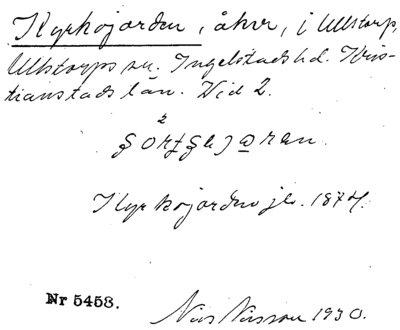 Kyrkojorden, åker, i Ullstorp,
Ullstorps sn. Ingelstads hd. Kris-
tianstads län. Vid 2.
Kyrkojorden jb. 1874.
Nr 5453. Nils Nilsson 1930.